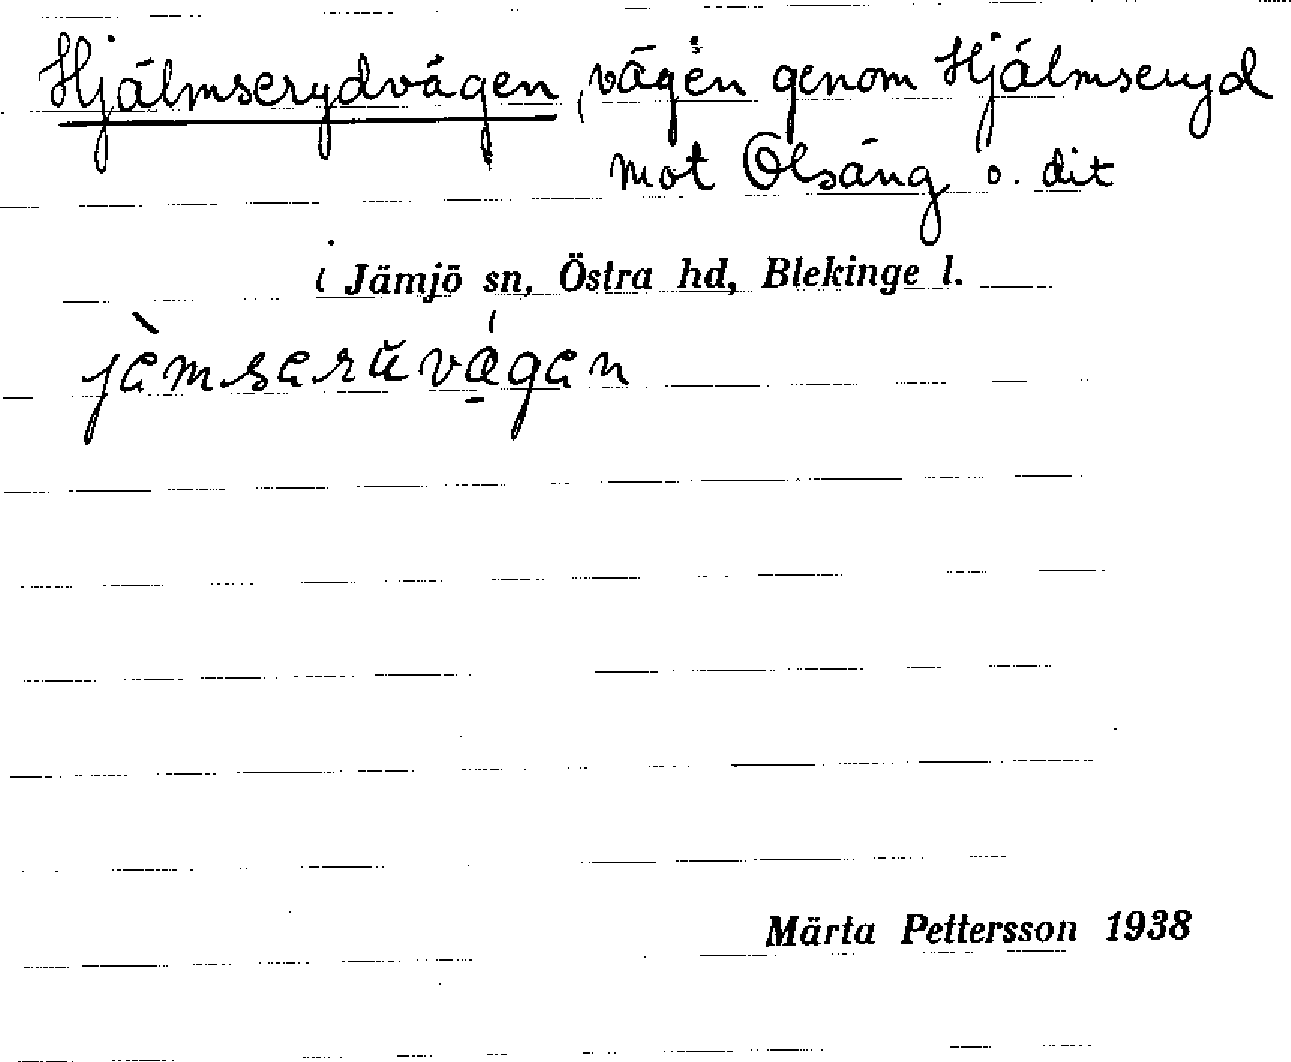 Hjälmserydvägen, vägen genom Hjälmseryd
mot Olsäng o. dit
i Jämjö sn, Östra hd, Blekinge l.
Märta Pettersson 1938